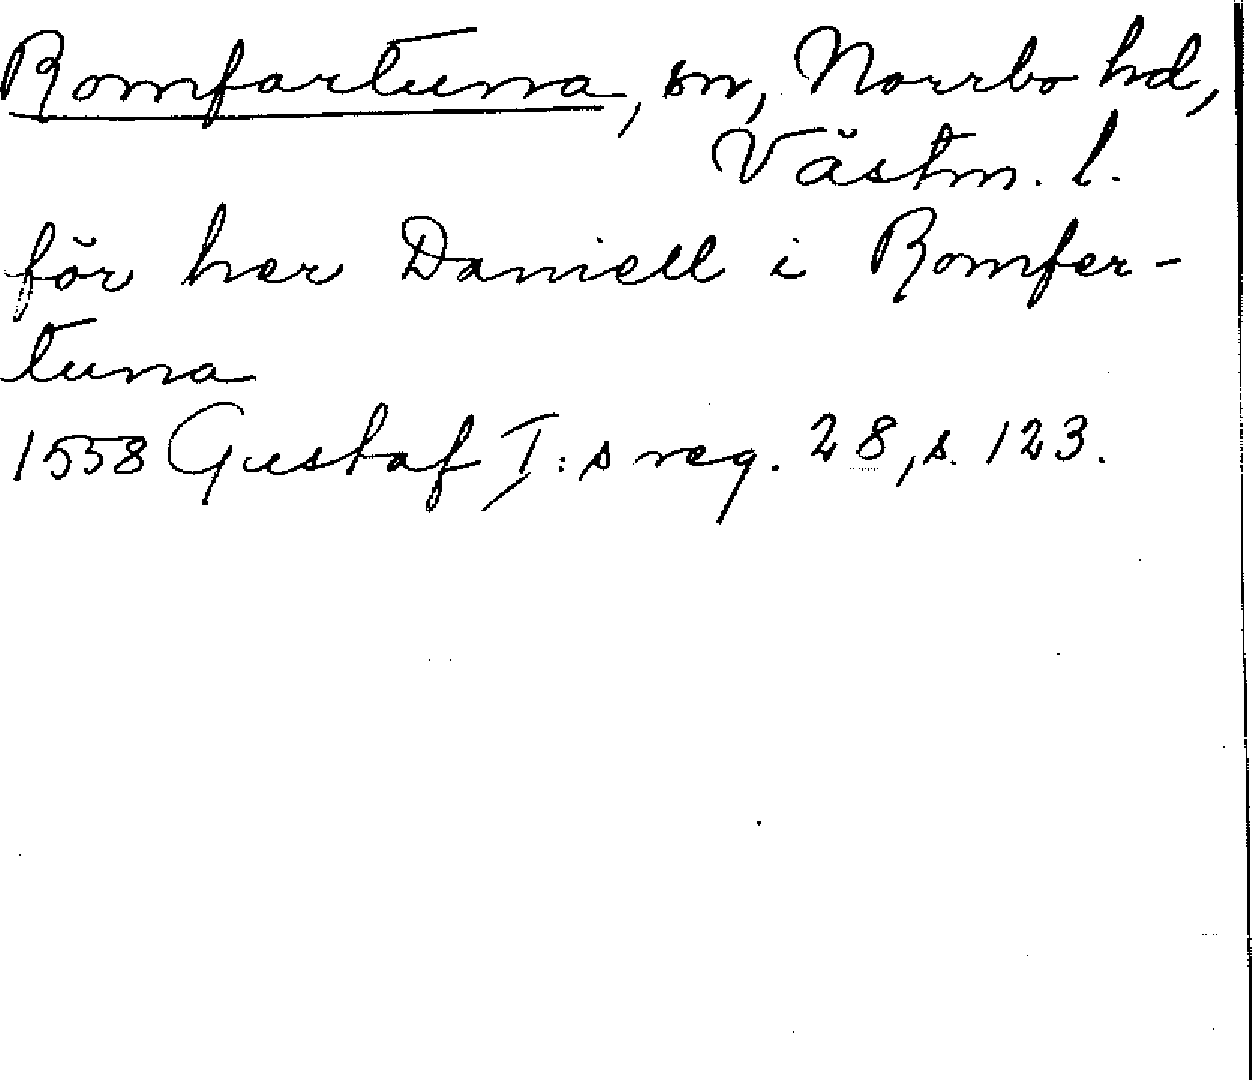 Romfartuna, sn, Norrbo hd,
Västm. l.
för her Daniell i Romfer-
tuna
1558 Gustaf I:s reg. 28, s. 123.